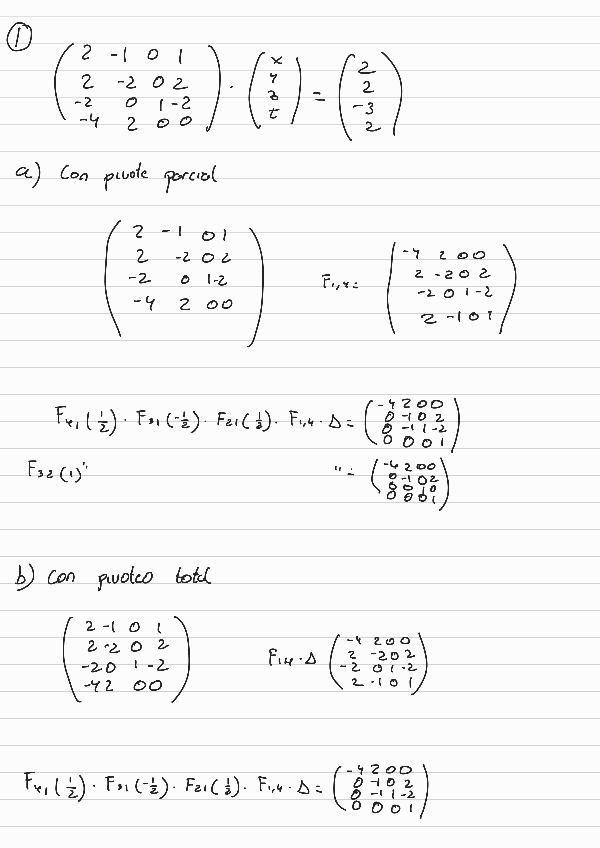 ①
( 2 -1 0 1 ) ( x ) ( 2 )
( 2 -2 0 2 ) · ( y ) = ( 2 )
( -2 0 1 -2 ) ( z ) ( -3 )
( -4 2 0 0 ) ( t ) ( 2 )
a) Con pivote parcial
( 2 -1 0 1 ) ( -4 2 0 0 )
( 2 -2 0 2 ) ( 2 -2 0 2 )
( -2 0 1 -2 ) F1,4 = ( -2 0 1 -2 )
( -4 2 0 0 ) ( 2 -1 0 1 )
F41 (1/2) · F31 (-1/2) · F21 (1/2) · F1,4 · Δ = ( -4 2 0 0 )
( 0 -1 0 2 )
( 0 -1 1 -2 )
( 0 0 0 1 )
F32 (1) " " = ( -4 2 0 0 )
( 0 -1 0 2 )
( 0 0 1 0 )
( 0 0 0 1 )
b) Con pivoteo total
( 2 -1 0 1 ) ( -4 2 0 0 )
( 2 -2 0 2 ) F1,4 · Δ ( 2 -2 0 2 )
( -2 0 1 -2 ) ( -2 0 1 -2 )
( -4 2 0 0 ) ( 2 -1 0 1 )
F41 (1/2) · F31 (-1/2) · F21 (1/2) · F1,4 · Δ = ( -4 2 0 0 )
( 0 -1 0 2 )
( 0 -1 1 -2 )
( 0 0 0 1 )